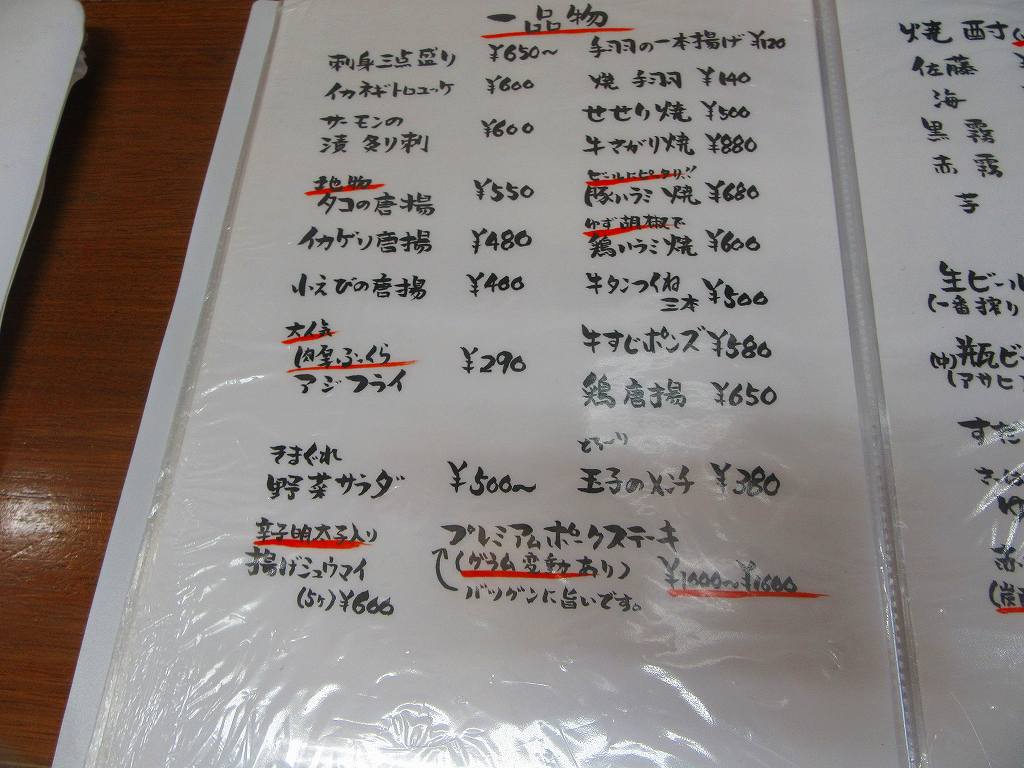 一品物
刺身三点盛り ¥650~
イカネギトロユッケ ¥600
サーモンの
漬 炙り刺 ¥600
地物
タコの唐揚 ¥550
イカゲソ唐揚 ¥480
小えびの唐揚 ¥400
大人気
肉厚ふっくら
アジフライ ¥290
きまぐれ
野菜サラダ ¥500~
辛子明太子入り
揚げシュウマイ
(5ヶ) ¥600
手羽の一本揚げ ¥120
焼 手羽 ¥140
せせり焼 ¥500
牛さがり焼 ¥880
ビールにピッタリ!!
豚ハラミ焼 ¥680
ゆず胡椒で
鶏ハラミ焼 ¥600
牛タンつくね
三本 ¥500
牛すじポンズ ¥580
鶏 唐揚 ¥650
とろ〜り
玉子のメンチ ¥380
プレミアムポークステーキ
(グラム変動あり) ¥1000~¥1600
バツグンに旨いです。
焼 酎
佐藤
海
黒霧
赤霧
芋
生ビール
(一番搾り
(中)瓶ビ
(アサヒ
すだ